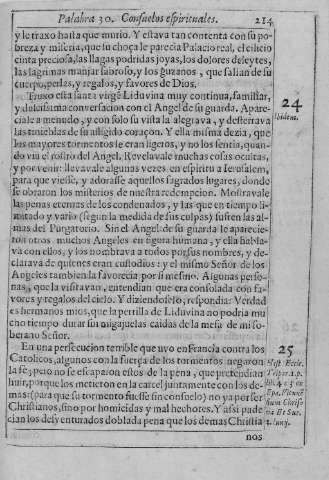 Palabra 30. Consuelos espirituales. 214
y le traxo hasta que murio. Y estava tan contenta con su po-
breza y miseria, que su choça le parecia Palacio real, el cilicio
cinta preciosa, las llagas podridas joyas, los dolores deleytes,
las lagrimas manjar sabroso, y los guzanos, que salian de su
cuerpo, perlas, y regalos, y favores de Dios.
Truxo esta santa virgẽ Liduvina muy continua, familiar,
y dulcissima conversacion con el Angel de su guarda. Apare-
ciale a menudo, y con solo su vista la alegrava, y desterrava
las tinieblas de su afligido coraçon. Y ella misma dezia, que
los mayores tormentos le eran ligeros, y no los sentia, quan-
do via el rostro del Angel. Revelavale muchas cosas ocultas,
y por venir: llevavale algunas vezes en espiritu a Ierusalem,
para que viesse, y adorasse aquellos sagrados lugares, donde
se obraron los misterios de nuestra redempcion. Mostravale
las penas eternas de los condenados, y las que en tiempo li-
mitado y vario (segun la medida de sus culpas) sufren las al-
mas del Purgatorio. Sin el Angel de su guarda le aparecie-
ron otros muchos Angeles en figura humana, y ella habla-
va con ellos, y los nombrava a todos por sus nombres, y de-
clarava de quienes eran custodios: y el mismo Señor de los
Angeles tambien la favorecia por si mesmo. Algunas perso-
nas, que la visitavan, entendian que era consolada con fa-
vores y regalos del cielo. Y diziendoselo, respondia: Verdad
es hermanos mios, que la perrilla de Liduvina no podria mu
cho tiempo durar sin migajuelas caidas de la mesa de mi so-
berano Señor.
24
Ibidem.
En una persecucion terrible que uvo en Francia contra los
Catolicos, algunos con la fuerça de los tormentos negaron
la fe; pero no se escaparon estos de la pena, que pretendian
huir, porque los metieron en la carcel juntamente con los de-
mas: (para que su tormento fuesse sin consuelo) no ya por ser
Christianos, sino por homicidas y mal hechores. Y assi pade
cian los desventurados doblada pena que los demas Christia
25
Hist. Eccle.
nos